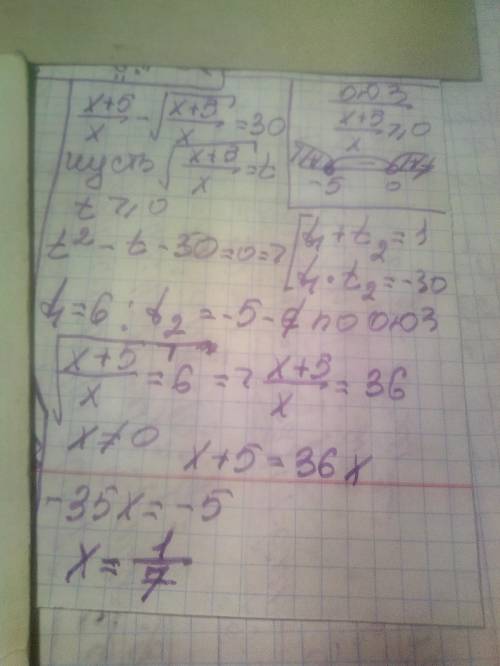 (x+5)/x - √((x+5)/x) = 30
пусть √((x+5)/x) = t
t ⩾ 0
ОДЗ
(x+5)/x ⩾ 0
-5 0
t² - t - 30 = 0 => [ t₁ + t₂ = 1
t₁ · t₂ = -30
t₁ = 6 ; t₂ = -5 - ∉ по ОДЗ
√((x+5)/x) = 6 => (x+5)/x = 36
x ≠ 0
x + 5 = 36x
-35x = -5
x = 1/7